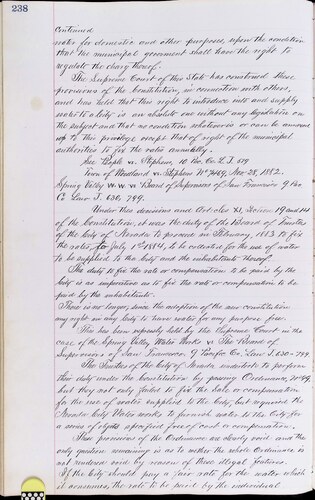 238
Continued
water for domestic and other purposes, upon the condition
that the municipal government shall have the right to
regulate the charge thereof.
The Supreme Court of this State has construed these
provisions of the Constitution, in connection with others,
and has held that this right to introduce into and supply
water to a city is an absolute one without any legislation on
the subject and that no condition whatsoever can be annexed
up to this privilege except that of right of the municipal
authorities to fix the rates annually.
See People v. Stephens, 10 Pac. Co. L. J.
Town of Woodland vs. Stephens No 7469, Nov. 28, 1882.
Spring Valley W. W. v. Board of Supervisors of San Francisco 9 Pac.
C. Law J. 630, 799.
Under these decisions and Article XI, Section 19 and 14
of the Constitution, it was the duty of the Board of Trustees
of the City of Nevada to procure in February, 1883 to fix
the rates, for July 1st 1884, to be collected for the use of water
to be supplied to the City and the inhabitants thereof.
The duty to fix the rate or compensation to be paid by the
City is as imperative as to fix the rate or compensation to be
paid by the inhabitants.
There is no longer, since the adoption of the new constitution
any right in any city to have water for any purpose free.
This has been expressly held by the Supreme Court in the
case of the Spring Valley Water Works vs The Board of
Supervisors of San Francisco, 9 Pacific Co. Law J. 630-799.
The Trustees of the City of Nevada undertook to perform
their duty under the Constitution by passing Ordinance, No 49,
but they not only failed to fix the rate or compensation
for the use of water supplied to the City, but required the
Nevada City Water Works to furnish water to the City, for
a series of objects specified free of cost or compensation.
These provisions of the Ordinance are clearly void and the
only question remaining is as to wether the whole Ordinance is
not rendered void by reason of these illegal features.
If the City should pay a fair rate for the water which
it consumes, the rate to be paid by the individual